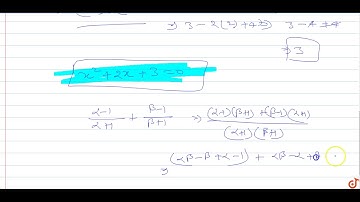 ⇒ 3 - 2(2) + 4 3 - 4 + 4
⇒ 3
x² + 2x + 3 = 0
(α-1)/(α+1) + (β-1)/(β+1) ⇒ ((α-1)(β+1) + (β-1)(α+1))/((α+1)(β+1))
⇒ (αβ - β + α - 1) + αβ - α + β